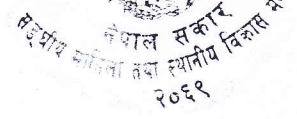 नेपाल सरकार
सङ्घीय मामिला तथा स्थानीय विकास
२०६९